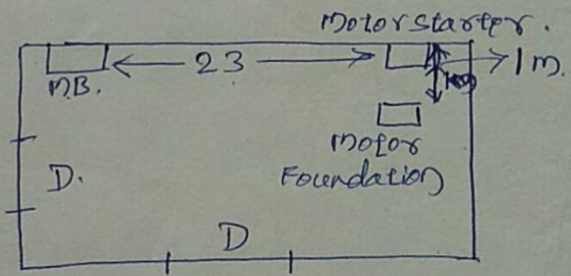 Motor starter.
M.B.
23
1m.
Motor
Foundation
D.
D